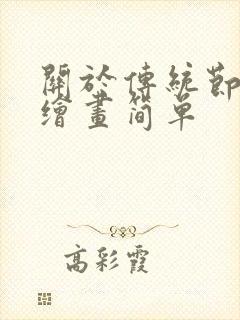 關於傳統節
繪畫簡單
高彩霞